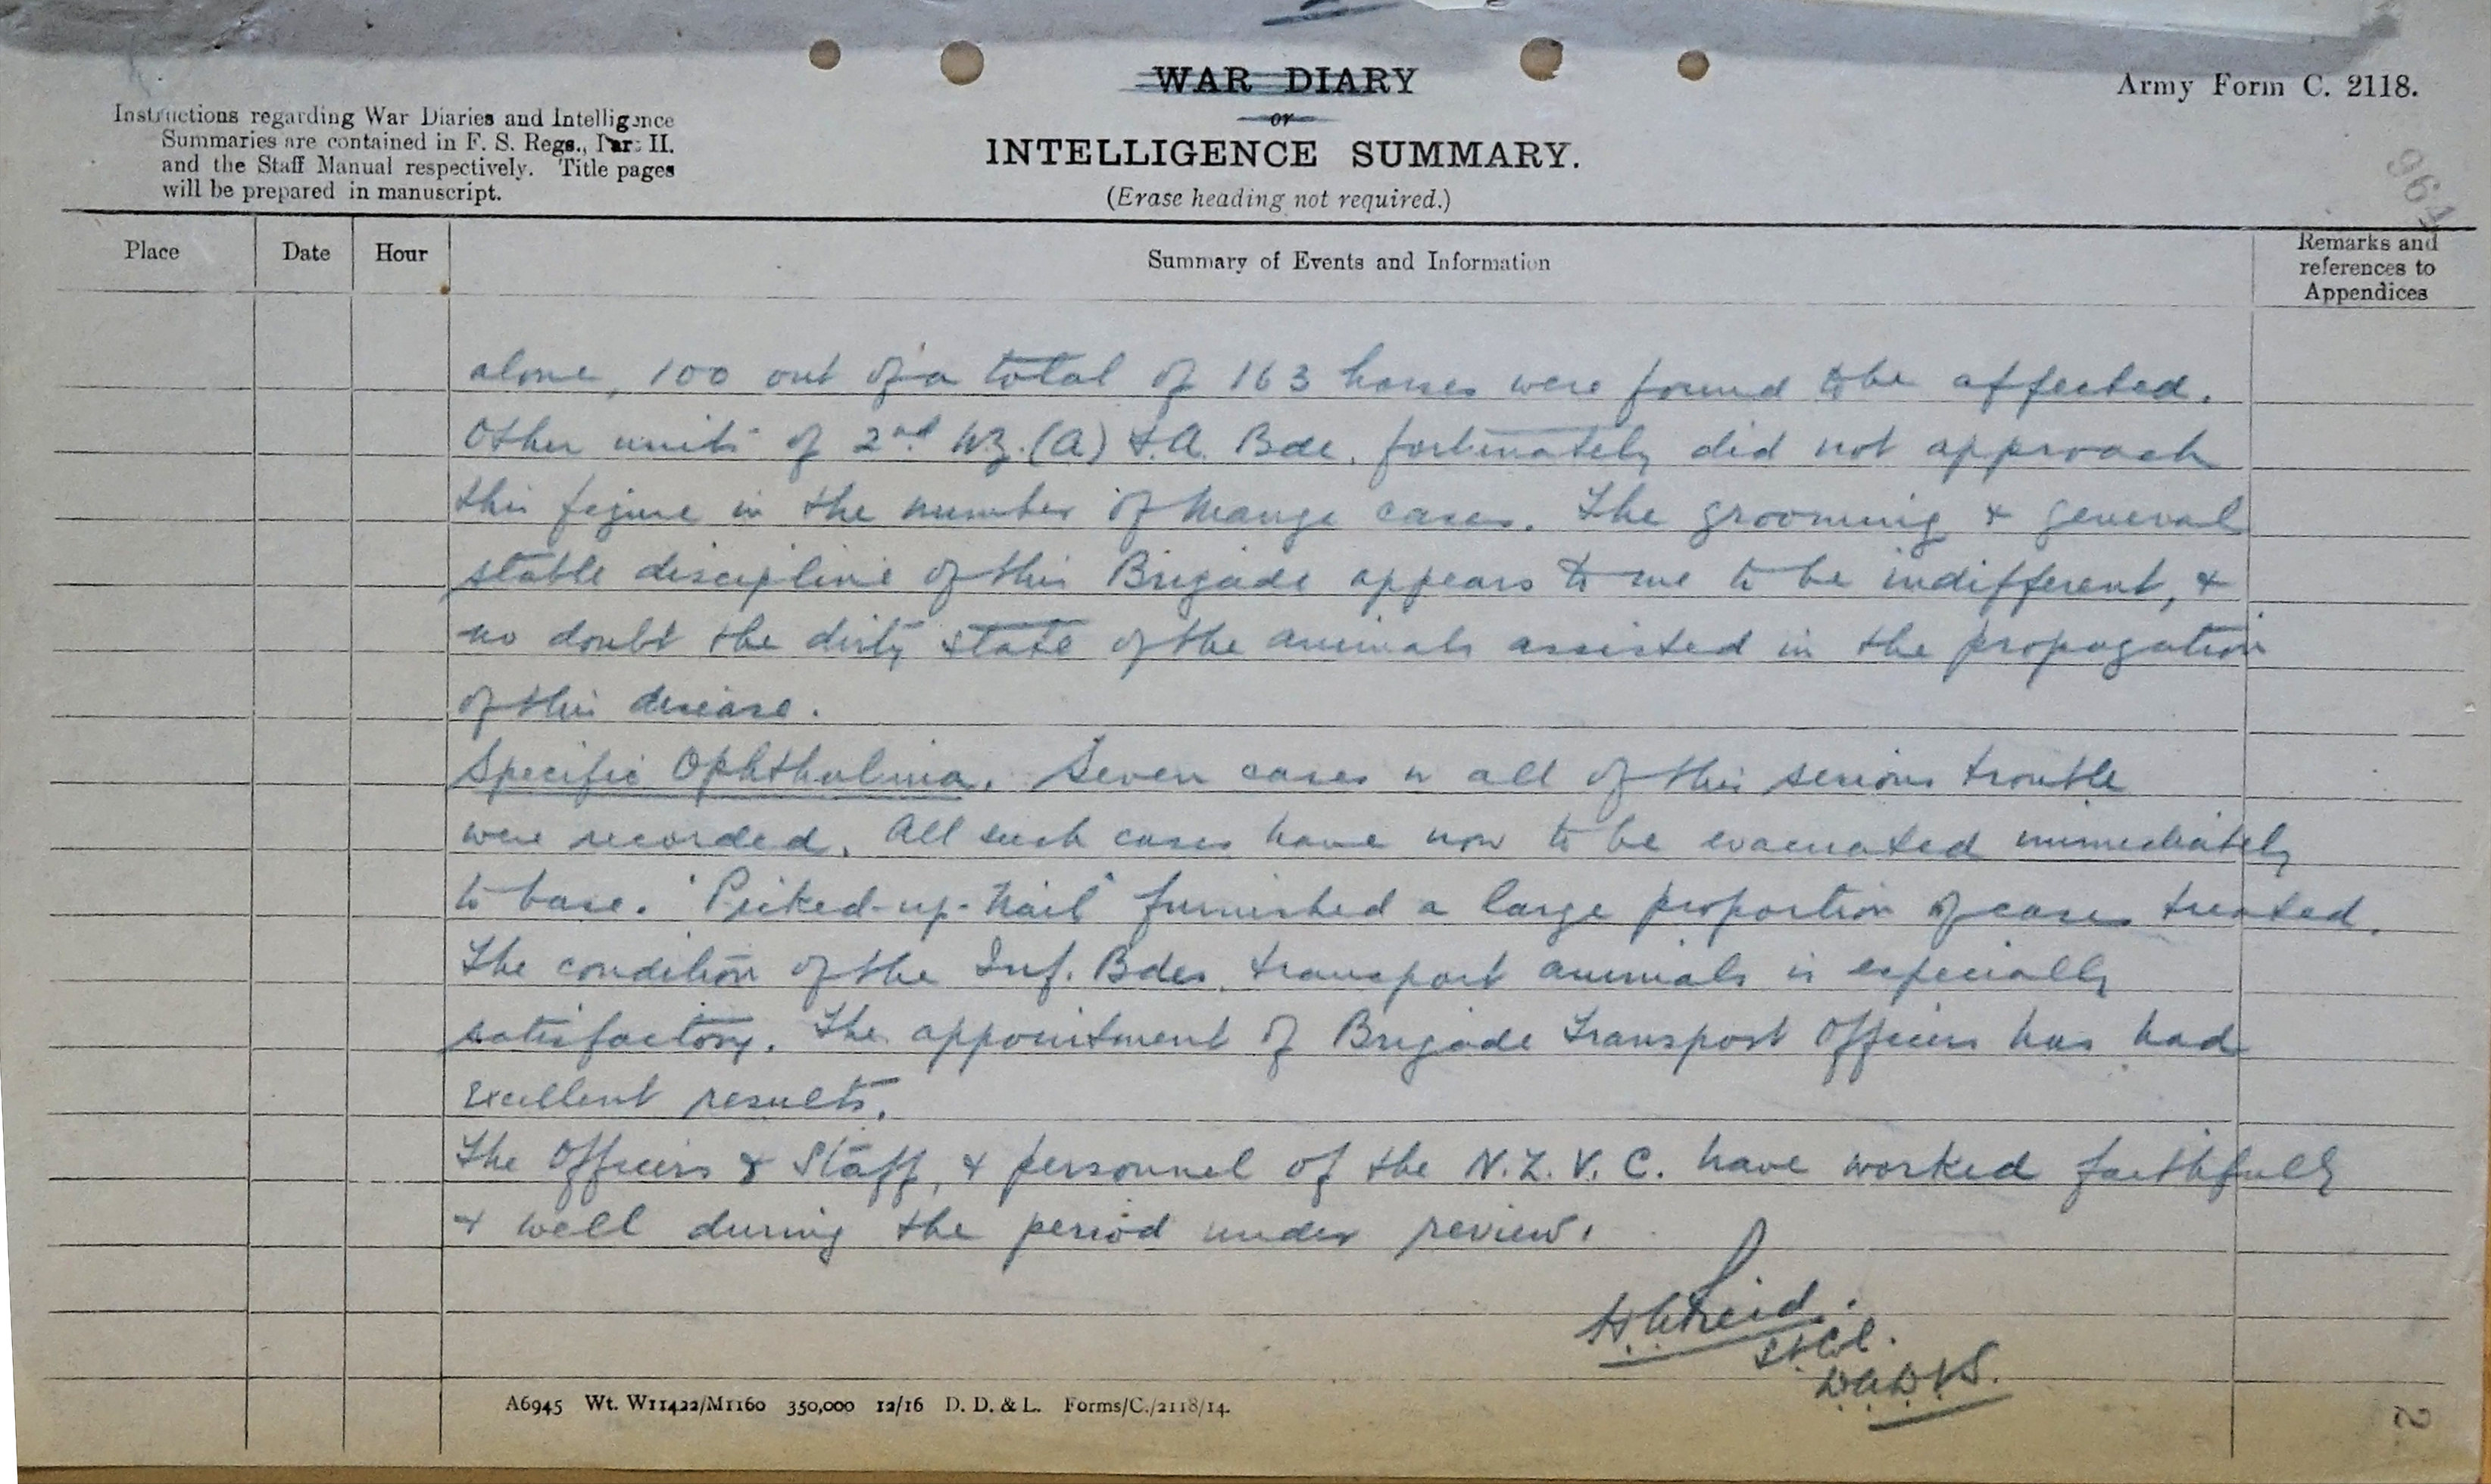 WAR DIARY
or
INTELLIGENCE SUMMARY.
(Erase heading not required.)
Army Form C. 2118.
Instructions regarding War Diaries and Intelligence
Summaries are contained in F. S. Regs., Part II.
and the Staff Manual respectively. Title pages
will be prepared in manuscript.
964
Place
Date
Hour
Summary of Events and Information
Remarks and
references to
Appendices
alone, 100 out of a total of 163 horses were found to be affected.
Other units of 2nd N.Z. (A) F.A. Bde. fortunately did not approach
this figure in the number of Mange cases. The grooming & general
stable discipline of this Brigade appears to me to be indifferent, &
no doubt the dirty state of the animals assisted in the propagation
of this disease.
Specific Ophthalmia. Seven cases in all of this serious trouble
were recorded. All such cases have now to be evacuated immediately
to base. "Picked-up-Nail" furnished a large proportion of cases treated.
The condition of the Inf. Bdes. transport animals is especially
satisfactory. The appointment of Brigade Transport Officers has had
excellent results.
The Officers & Staff, & personnel of the N.Z.V.C. have worked faithfully
& well during the period under review.
Reid.
Lt Col.
D.A.D.V.S.
A6945 Wt. W11422/M1160 350,000 12/16 D. D. & L. Forms/C./2118/14.
2